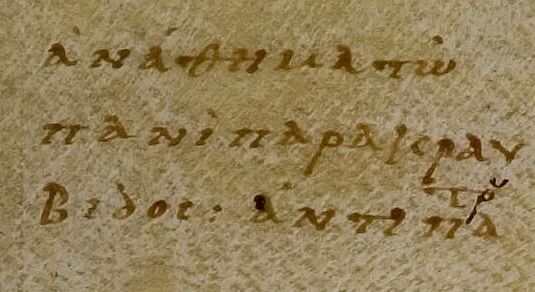 ἀνάθημα τῶ
πανὶ παρα κραυ
βιδος: ἀντιπατρου